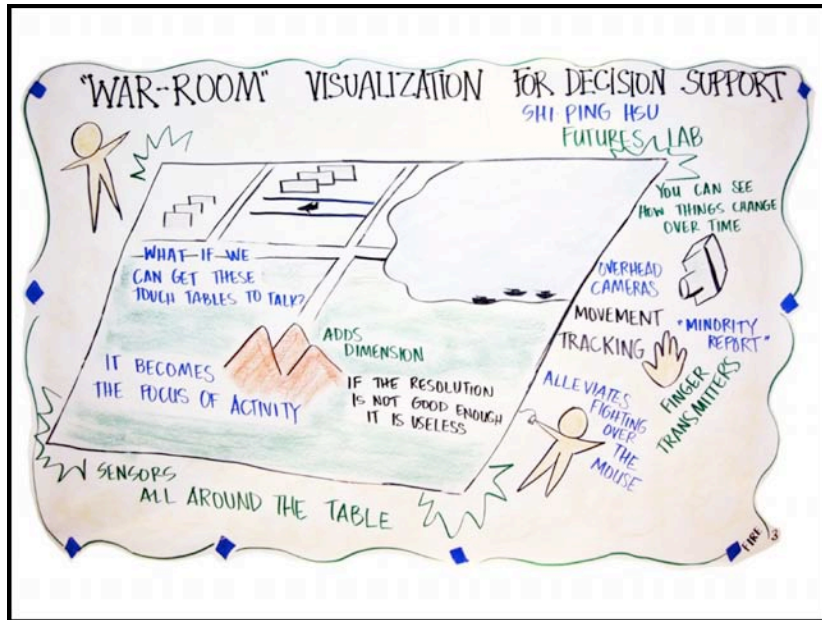 "WAR-ROOM" VISUALIZATION FOR DECISION SUPPORT
SHI PING HSU
FUTURES LAB
YOU CAN SEE
HOW THINGS CHANGE
OVER TIME
WHAT IF WE
CAN GET THESE
TOUCH TABLES TO TALK?
OVERHEAD
CAMERAS
MOVEMENT
TRACKING
"MINORITY
REPORT"
FINGER
TRANSMITTERS
ADDS
DIMENSION
IT BECOMES
THE FOCUS OF ACTIVITY
IF THE RESOLUTION
IS NOT GOOD ENOUGH
IT IS USELESS
ALLEVIATES
FIGHTING
OVER
THE
MOUSE
SENSORS
ALL AROUND THE TABLE
FIRE 3